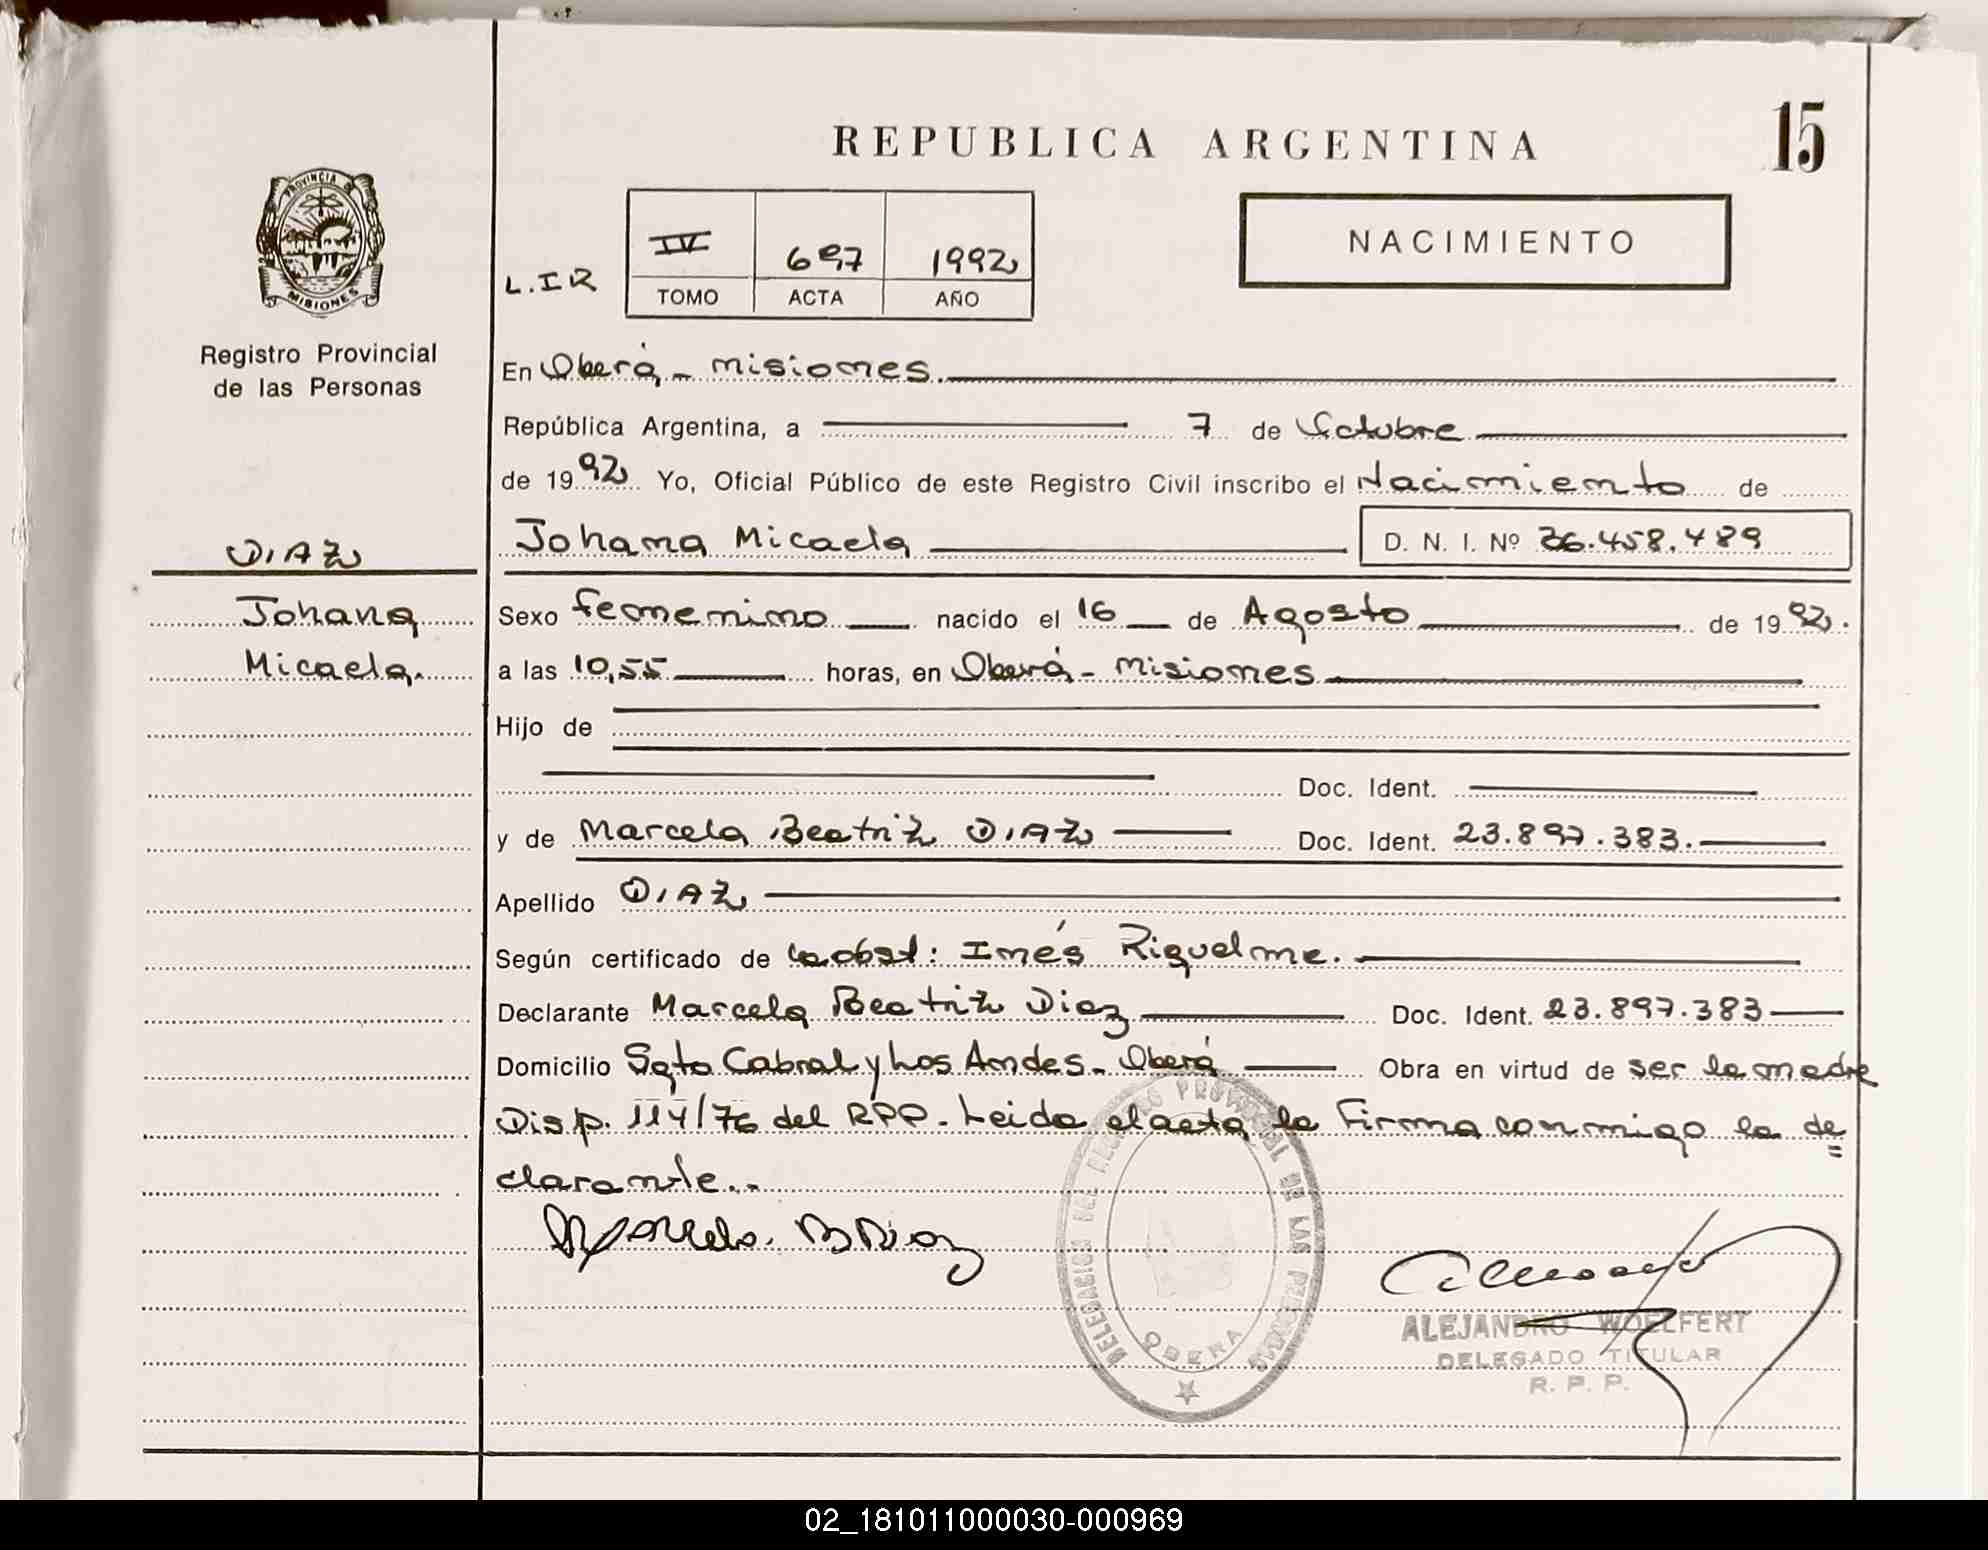 REPUBLICA ARGENTINA
15
PROVINCIA DE
MISIONES
Registro Provincial
de las Personas
L.I.R
IV 697 1992
TOMO ACTA AÑO
NACIMIENTO
En Oberá - misiones.
República Argentina, a 7 de Octubre
de 1992 Yo, Oficial Público de este Registro Civil inscribo el Nacimiento de
DIAZ
Johana
Micaela.
Johana Micaela D. N. I. Nº 36.458.489
Sexo femenino nacido el 16 de Agosto de 1992.
a las 10,55 horas, en Oberá - misiones
Hijo de
Doc. Ident.
y de Marcela Beatriz DIAZ Doc. Ident. 23.897.383.
Apellido DIAZ
Según certificado de la obst: Inés Riquelme.
Declarante Marcela Beatriz Diaz Doc. Ident. 23.897.383
Domicilio Sgto Cabral y Los Andes - Oberá Obra en virtud de ser la madre
Disp. 114/76 del RPP - Leida el acta la Firma conmigo la de
clarante..
Marcela. B Diaz
DELEGACION DEL REGISTRO PROVINCIAL DE LAS PERSONAS
OBERA
ALEJANDRO WOELFERT
DELEGADO TITULAR
R. P. P.
02_181011000030-000969